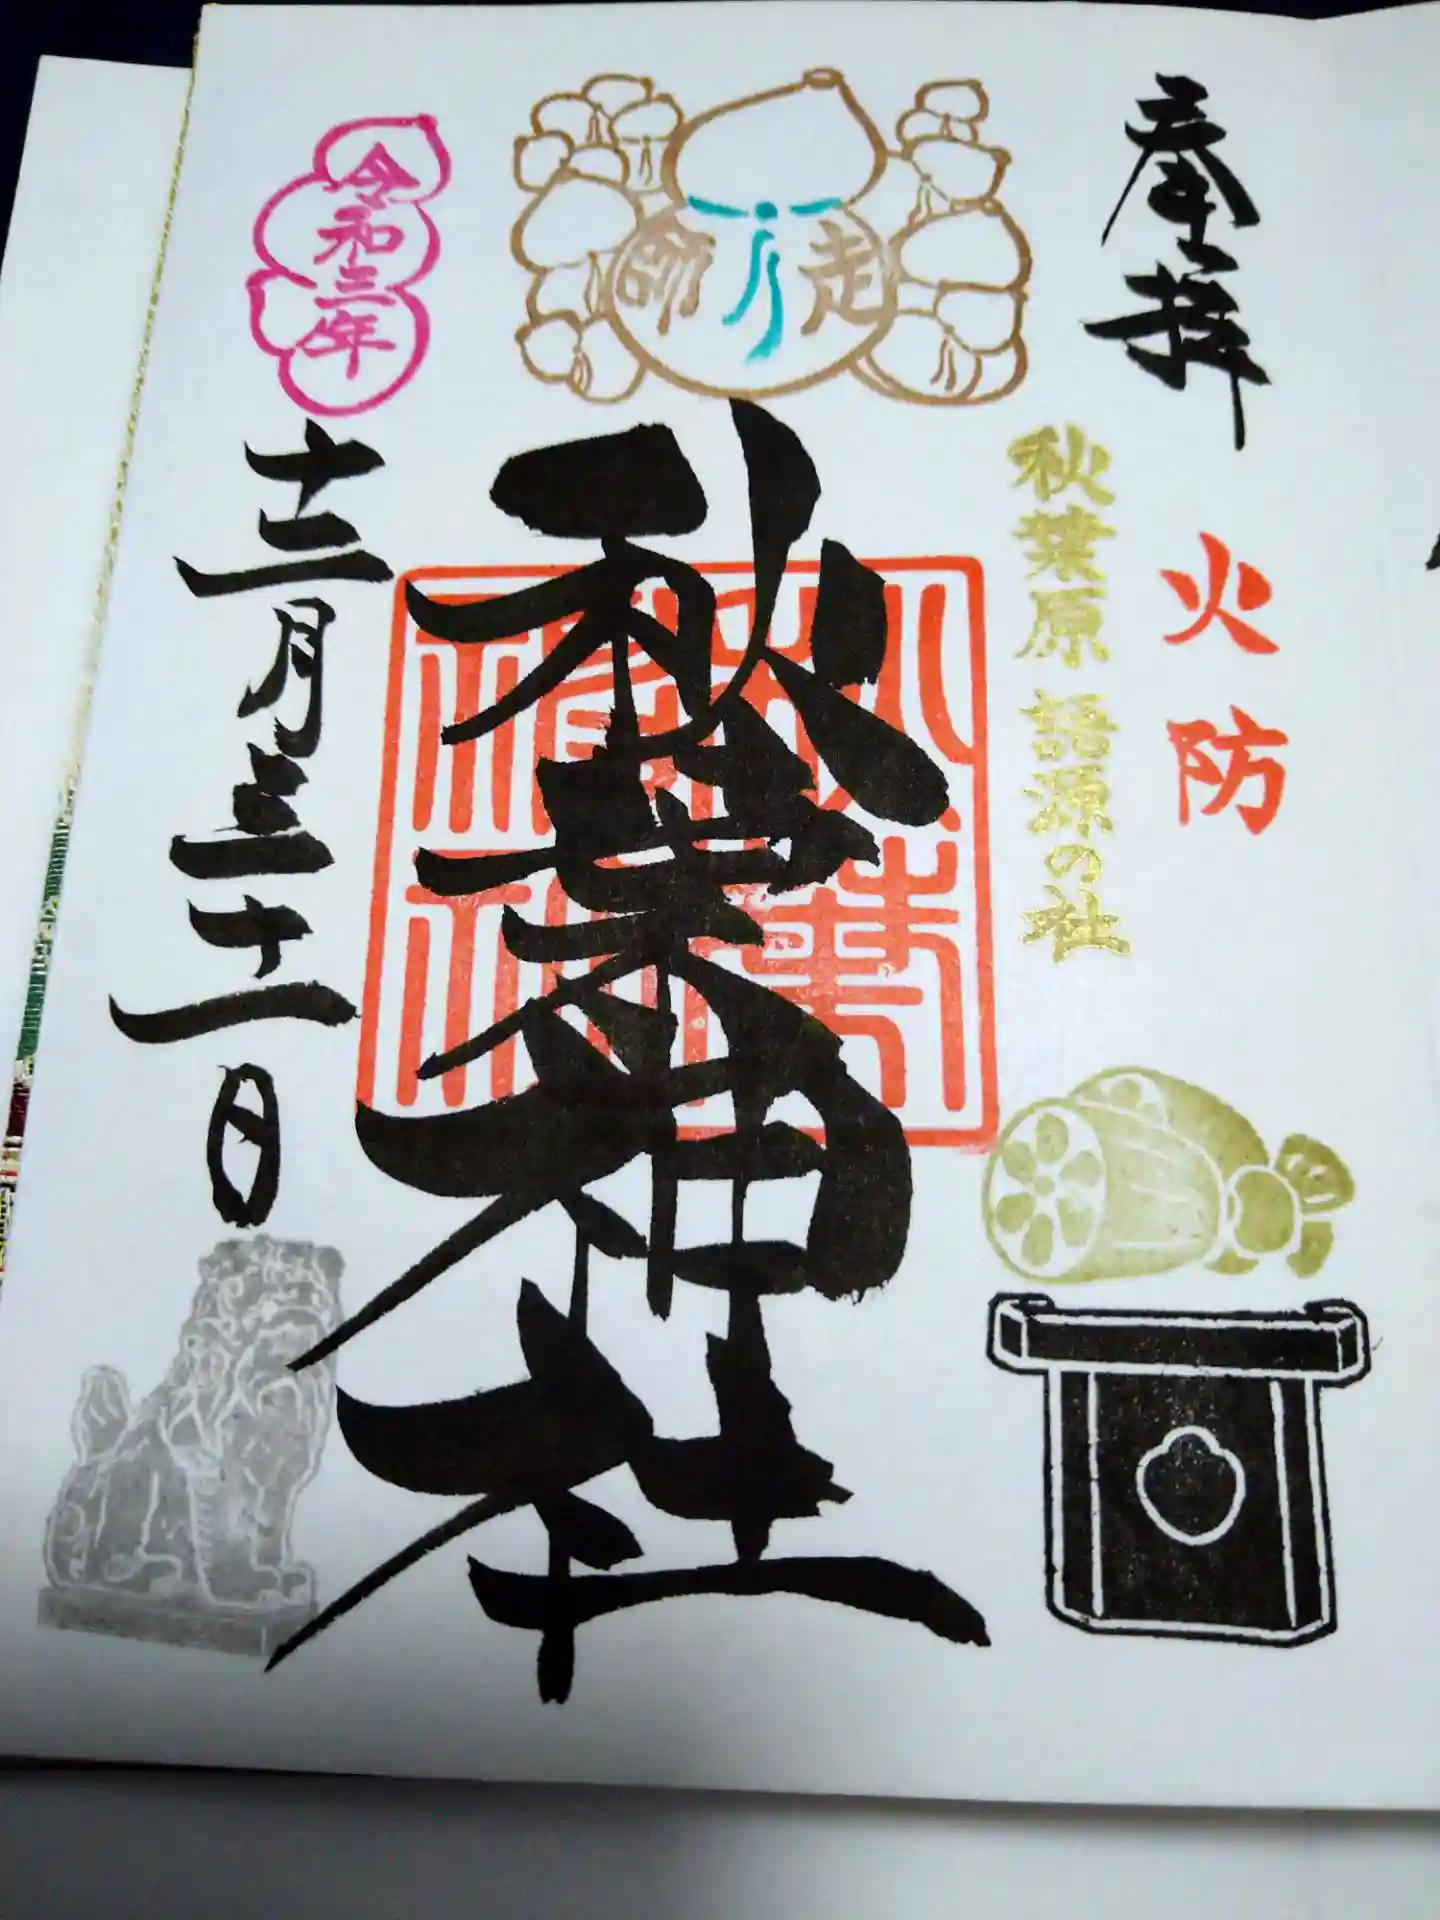 奉拝
火防
秋葉原 語源の社
走り師
秋葉神社
秋葉神社
令和三年
十二月三十一日